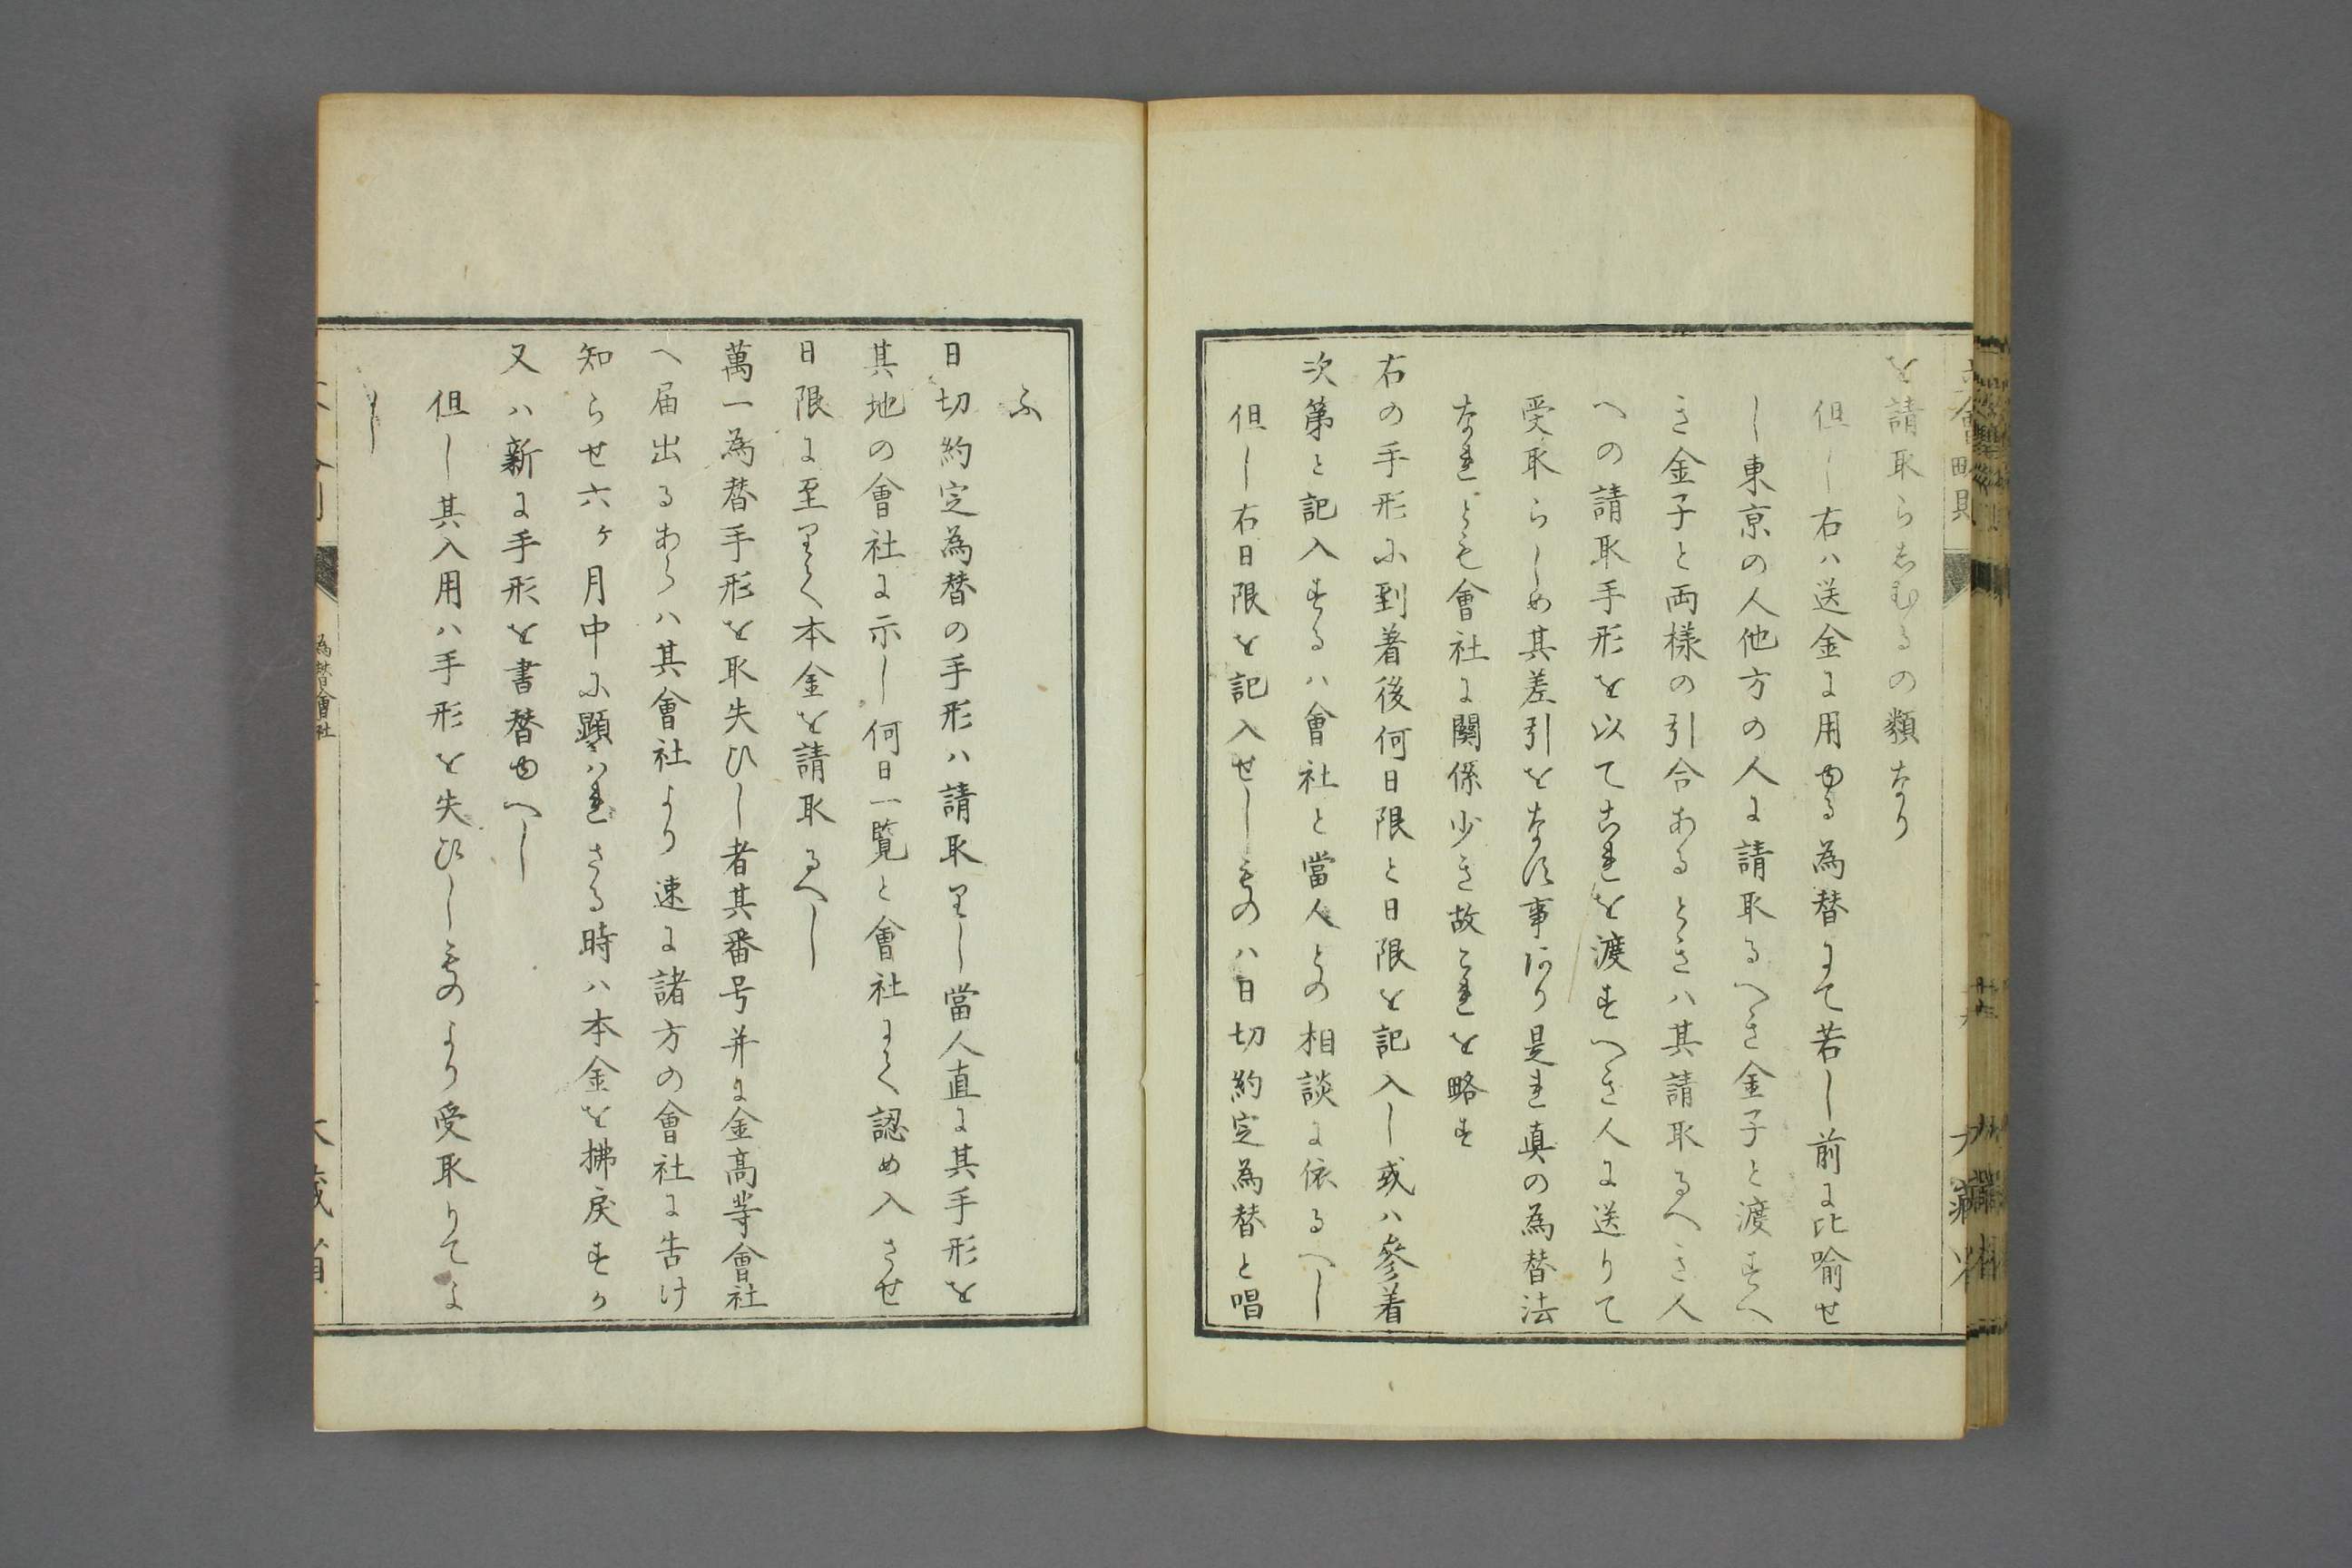 を請取らしむるの類なり
但し右ハ送金に用ゆる為替にて若し前に比喩せ
し東京の人他方の人に請取るへき金子と渡すへ
き金子と両様の引合あるときハ其請取るへき人
への請取手形を以てこれを渡すへき人に送りて
受取らしめ其差引をなす事あり是れ真の為替法
なれとも會社に関係少き故これを略す
右の手形に到着後何日限と日限を記入し或ハ參着
次第と記入するハ會社と當人との相談に依るへし
但し右日限を記入せしものハ日切約定為替と唱
ふ
日切約定為替の手形ハ請取りし當人直に其手形を
其地の會社に示し何日一覧と會社にて認め入させ
日限に至りて本金を請取るへし
萬一為替手形を取失ひし者其番号并に金高等會社
へ届出るあらハ其會社より速に諸方の會社に告け
知らせ六ヶ月中に顕ハれさる時ハ本金を拂戻すか
又ハ新に手形を書替ゆへし
但し其入用ハ手形を失ひしものより受取りてよ
し
為替會社